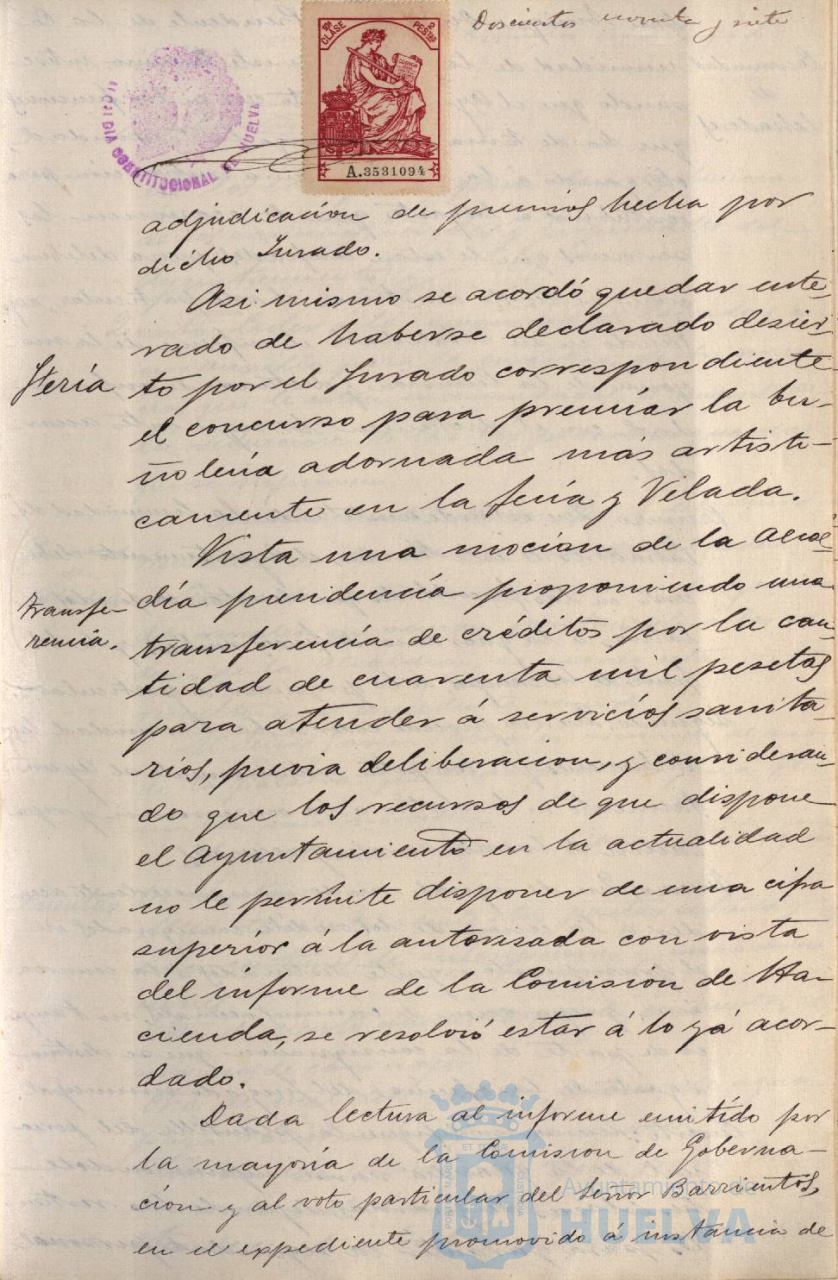 Doscientos noventa y siete
10ª CLASE
2 PESTAS
A.3531094
ALCALDIA CONSTITUCIONAL DE HUELVA
adjudicación de premios hecha por
dicho Jurado.
Asi mismo se acordó quedar ente-
rado de haberse declarado desier-
Feria
to por el Jurado correspondiente
el concurso para premiar la bu-
ñoleria adornada más artisti-
camente en la feria y Velada.
Vista una mocion de la Alcal-
Transfe-
rencia.
día presidencia proponiendo una
transferencia de créditos por la can-
tidad de cuarenta mil pesetas
para atender á servicios sanita-
rios, previa deliberacion, y consideran-
do que los recursos de que dispone
el Ayuntamiento en la actualidad
no le permite disponer de una cifra
superior á la autorisada con vista
del informe de la Comision de Ha-
cienda, se resolvió estar á lo yá acor-
dado.
Dada lectura al informe emitido por
la mayoría de la Comision de Goberna-
ción y al voto particular del Señor Barrientos,
en el expediente promovido á instancia de
Ayuntamiento de
HUELVA